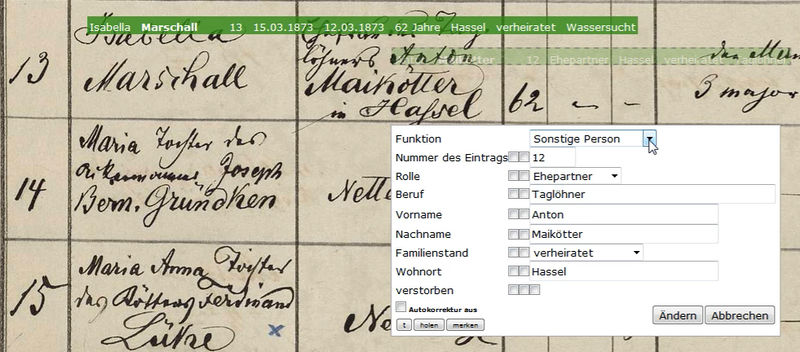 Isabella Marschall 13 15.03.1873 12.03.1873 62 Jahre Hassel verheiratet Wassersucht
Isabella
Anton
12 Ehepartner Hassel verheiratet
löhners Anton
13
Marschall
Maikötter
in Hassel
62
3 major
Maria Tochter des
Joseph
14
Bern. Gründken
Maria Anna Tochter
15
des Kötters Ferdinand
Lütke
Funktion Sonstige Person
Nummer des Eintrags 12
Rolle Ehepartner
Beruf Taglöhner
Vorname Anton
Nachname Maikötter
Familienstand verheiratet
Wohnort Hassel
verstorben
Autokorrektur aus
t holen merken
Ändern Abbrechen